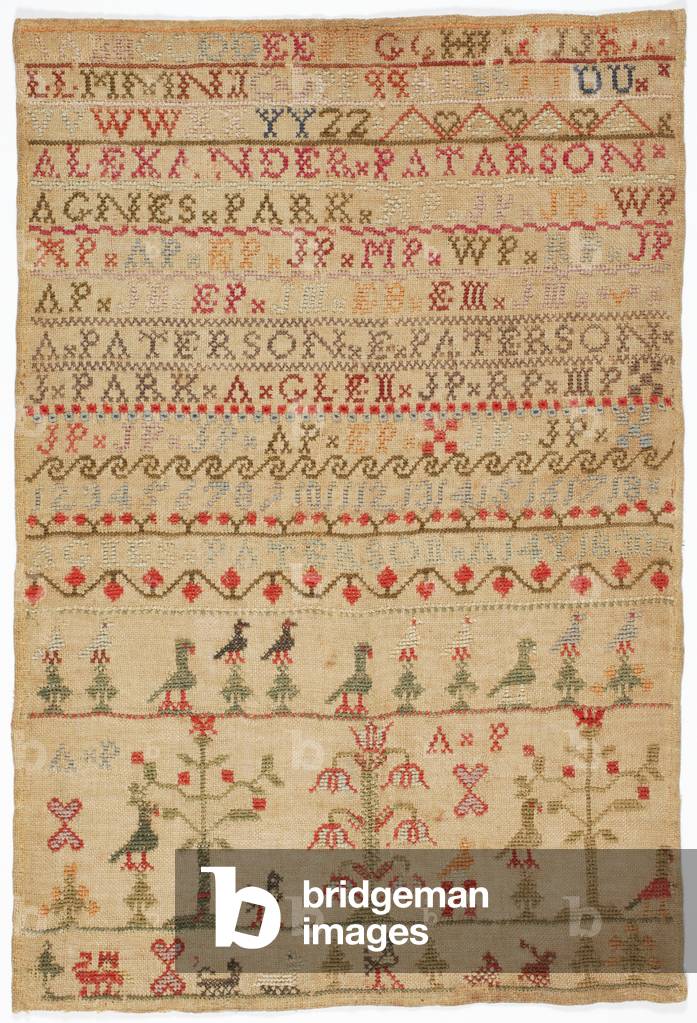 AABBCCDDEEFFGGHHIJJKK
LLMMNNOOPPQQRRSSTTUU××
VVWWXXYYZZ &
ALEXANDER×PATARSON×
AGNES×PARK× JP× JP× JP× WP
MP× AP× RP× JP× MP× WP× RP× JP
AP× JM EP× JM EB× EM× JM
A×PATERSON×E×PATERSON×
J×PARK×A×GLEN×JP×RP×MP
JP×JP×JP× AP×EP× JP×
123456789101112131415161718×
AGNES PATERSON
A×P
A×P
b bridgeman images